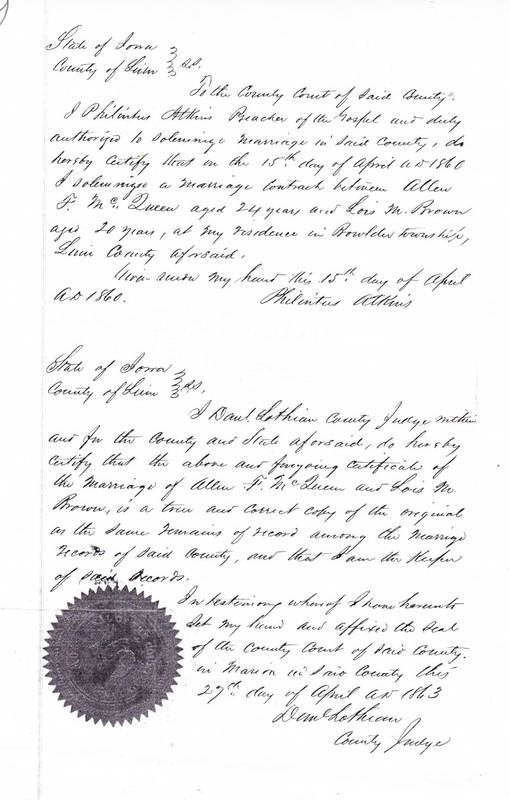 State of Iowa
County of Linn } S.S.
To the County Court of Said County.
I Philintus Atkins Preacher of the Gospel and duly
authorized to solemnize marriage in Said County, do
hereby certify that on the 15th day of April AD 1860
I solemnized a marriage contract between Allen
F. McQueen aged 24 years and Lois M. Brown
aged 20 years, at my residence in Bowlder township,
Linn County aforsaid.
Given under my hand this 15th day of April
AD 1860. Philintus Atkins
State of Iowa
County of Linn } S.S.
I Danl Lothian County Judge within
and for the County and State aforsaid, do hereby
certify that the above and foregoing certificate of
the marriage of Allen F. McQueen and Lois M.
Brown, is a true and correct copy of the original
as the same remains of record among the marriage
records of Said County, and that I am the Keeper
of said records.
In testimony whereof I have hereunto
Set my hand and affixed the Seal
of the County Court of Said County.
in Marion in Said County this
27th day of April AD 1863
Danl Lothian
County Judge